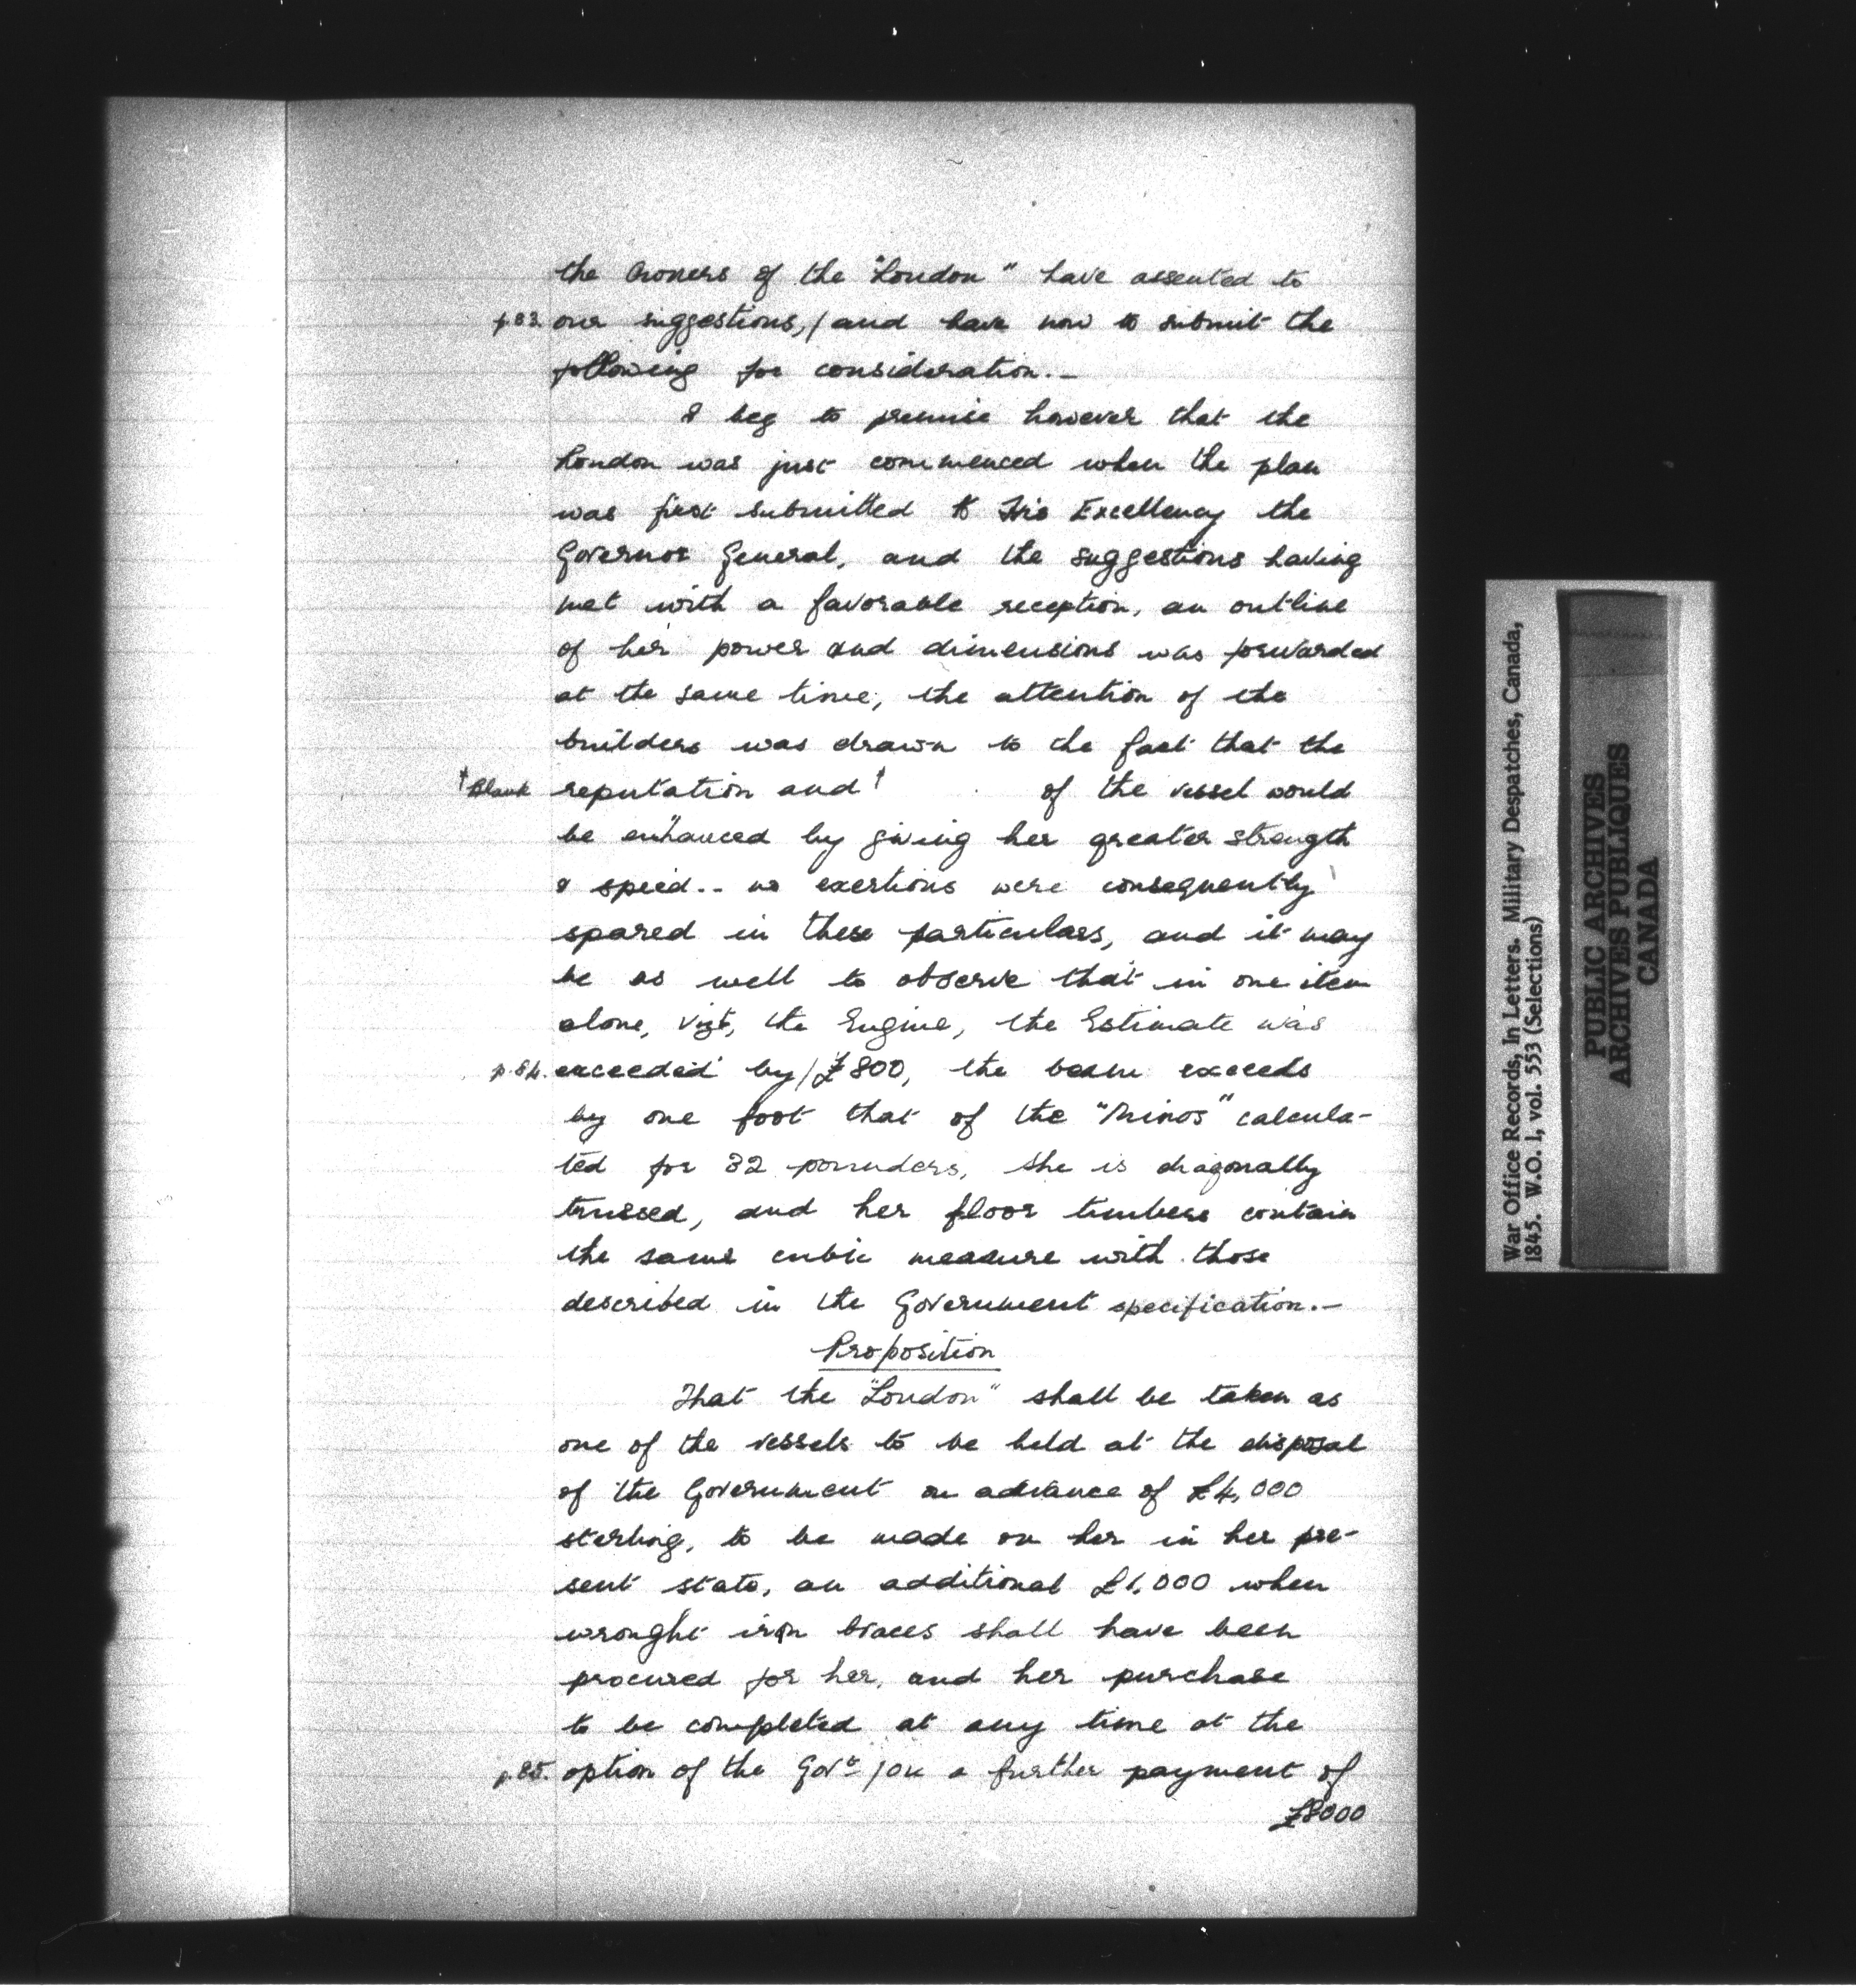 the Owners of the "London" have assented to
p.83. our suggestions,/ and have now to submit the
following for consideration.-
I beg to premise however that the
London was just commenced when the plan
was first submitted to His Excellency the
Governor General, and the suggestions having
met with a favorable reception, an outline
of her power and dimensions was forwarded
at the same time, the attention of the
builders was drawn to the fact that the
†Blank reputation and † of the vessel would
be enhanced by giving her greater strength
& speed.- no exertions were consequently
spared in these particulars, and it may
be as well to observe that in one item
alone, vizt, the Engine, the Estimate was
p.84. exceeded by/ £800, the beam exceeds
by one foot that of the "Minos" calcula-
ted for 32 pounders, she is diagonally
trussed, and her floor timbers contain
the same cubic measure with those
described in the Government specification.-
Proposition
That the "London" shall be taken as
one of the vessels to be held at the disposal
of the Government on advance of £4,000
sterling, to be made on her in her pre-
sent state, an additional £1,000 when
wrought iron braces shall have been
procured for her, and her purchase
to be completed at any time at the
p.85. option of the Govt / on a further payment of
£8000
War Office Records, In Letters. Military Despatches, Canada,
1845. W.O. 1, vol. 553 (Selections)
PUBLIC ARCHIVES
ARCHIVES PUBLIQUES
CANADA